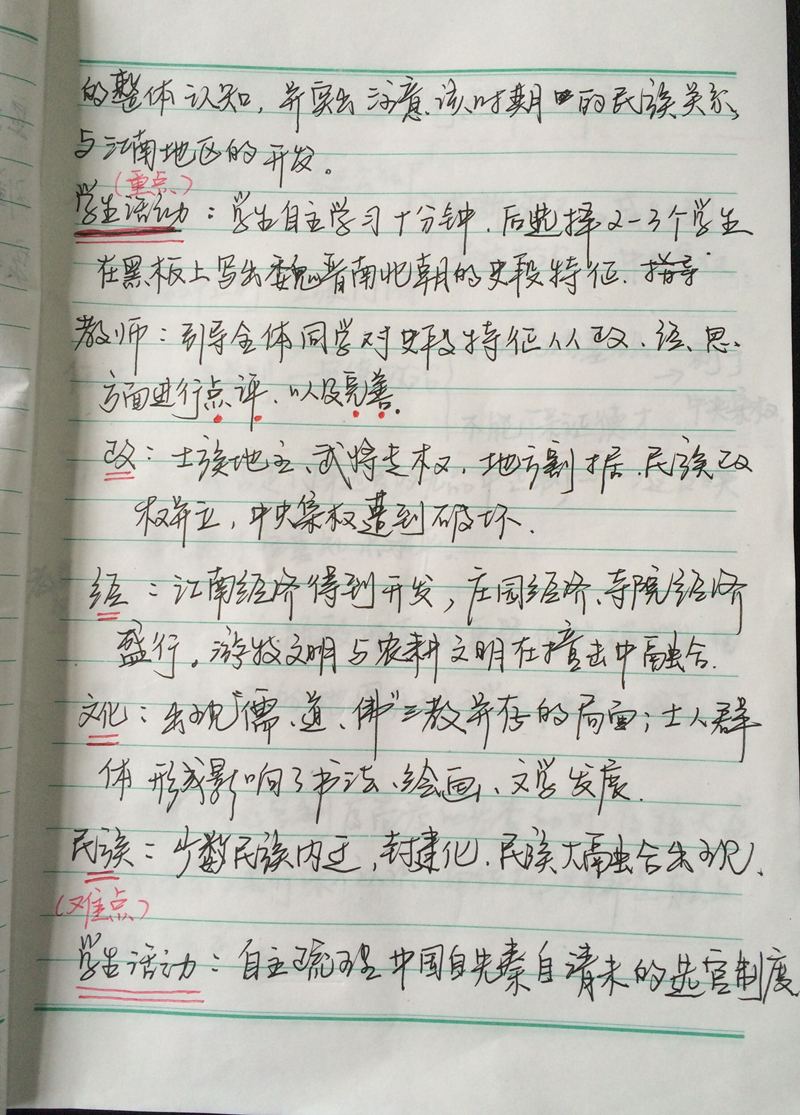 的整体认知，并突出注意该时期的民族关系
与江南地区的开发。
（重点）
学生活动：学生自主学习十分钟，后选择2-3个学生
在黑板上写出魏晋南北朝的史段特征.
教师：引导全体同学对史段特征从政、经、思
方面进行点评，以及完善。
政：士族地主、武将专权，地方割据，民族政
权并立，中央集权遭到破坏.
经：江南经济得到开发，庄园经济、寺院经济
盛行。游牧文明与农耕文明在撞击中融合.
文化：出现“儒、道、佛”三教并存的局面；士人群
体形成影响了书法、绘画、文学发展.
民族：少数民族内迁，封建化，民族大融合出现.
（难点）
学生活动：自主梳理中国自先秦自清末的选官制度